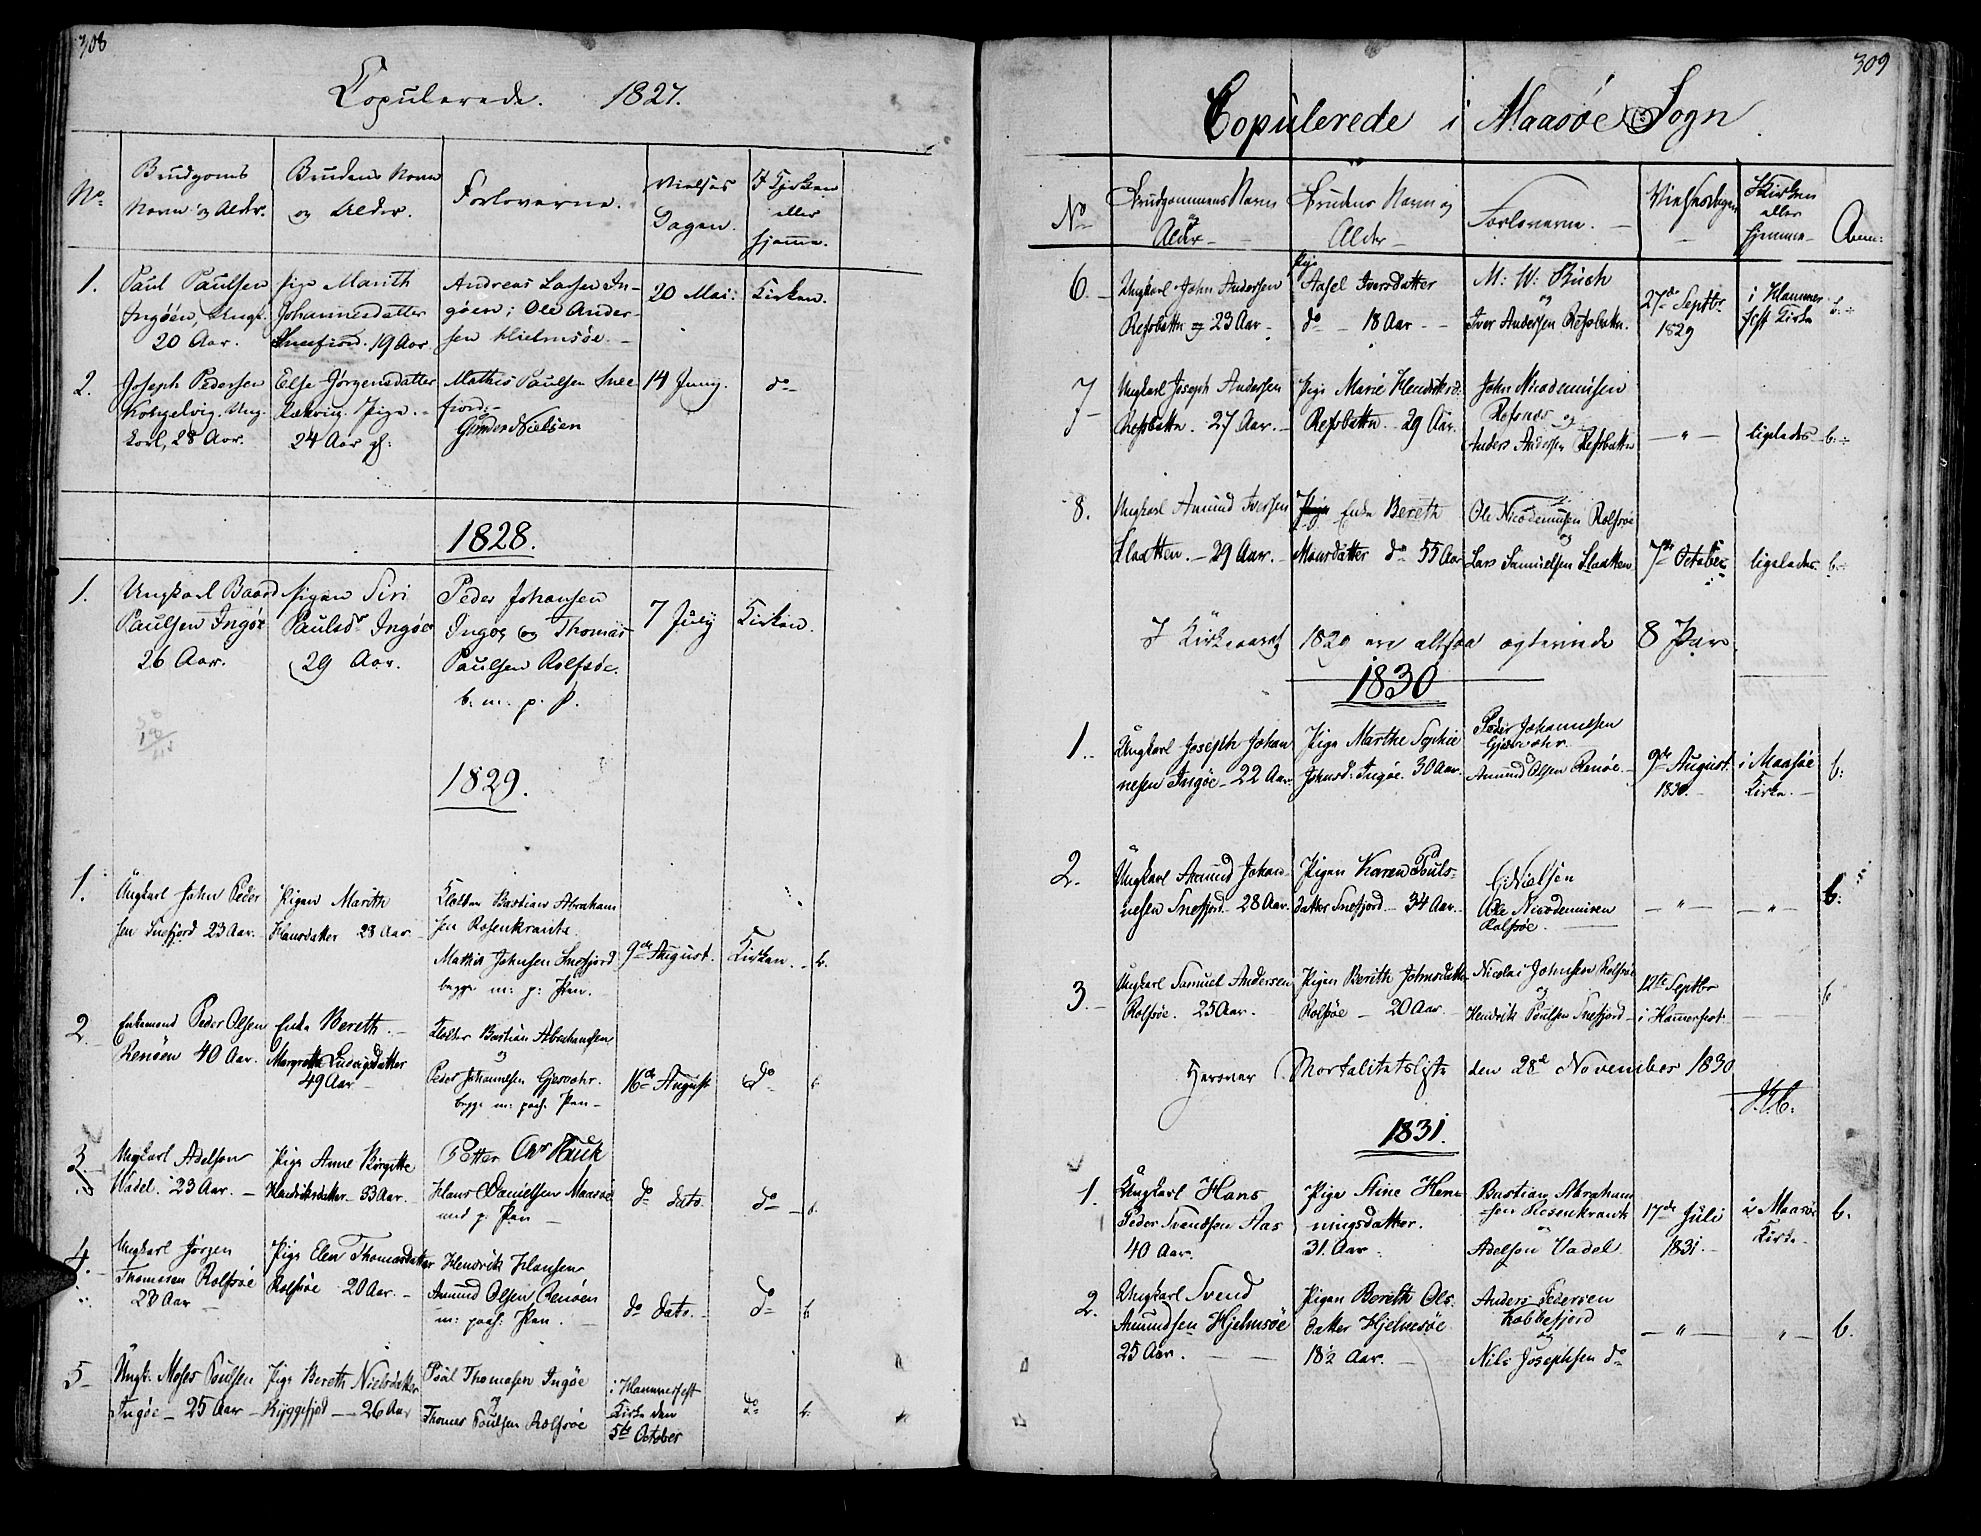 308
Copulerede. 1827.
No.
Brudgoms Navn og Alder.
Brudens Navn og Alder.
Forloverne.
Vielses Dagen.
I Kirken eller hjemme.
1.
Paul Paulsen
Ingøen, Ungk.
20 Aar.
Pige Marith
Johannesdatter
Snefiord. 19 Aar.
Andreas Larsen In-
gøen; Ole Ander-
sen Hielmsøe.
20 Mai:
Kirken.
2.
Joseph Pedersen
Ung-
karl, 28 Aar.
Else Jørgensdatter
Pige.
24 Aar
Mathis Paulsen Snee
fiord;
Gunder Nielsen
14 Juny.
do
1828.
1.
Ungkarl Baard
Paulsen Ingøe
26 Aar.
Pigen Siri
Paulsdr Ingøe
29 Aar.
Peder Johansen
Ingøe og Thomas
Paulsen Rolfsøe.
b. m. p. P.
7 July
Kirken.
1829.
1.
Ungkarl John Peder
sen Snefjord 23 Aar.
Pigen Marith
Hansdatter 28 Aar
Klokker Bastian Abraham
sen Rosenkrantz.
Mathis Johnsen Snefjord
begge m: p: Pen.
9de August.
Kirken.
b.
2
Enkemand Peder Olsen
Renøen 40 Aar.
Enke Bereth
Margrethe Ludvigsdatter
49 Aar
Klokker Bastian Abrahamsen
og
Peder Johannesen Gjesvohr.
begge m: paah: Pen
16de August
do
b.
3.
Ungkarl Adelson
Vadel. 23 Aar.
Pige Anne Birgitte
Hendriksdatter 33 Aar.
Petter Chr Hauk
Hans Danielsen Maasøe
med p. Pen
do dato.
do
b.
4.
Ungkarl Jørgen
Thomasen Rolfsøe
28 Aar
Pige Elen Thomasdatter
Rolfsøe 20 Aar.
Hendrik Hansen
Amund Olsen Renøen
m: paah: Pen.
do dato.
do
b.
5
Ungk. Moses Poulsen
Ingøe 25 Aar
Pige Bereth Nielsdatter
Ryggefjod 26 Aar
Poul Thomasen Ingøe
og
Thomas Poulsen Rolfsøe
i Hammerfest
Kirke den
5te October
do
b.
309
Copulerede i Maasøe Sogn
No
Brudgommens Navn og Alder
Brudens Navn og Alder
Forloverne.
Vielsesdagen
I Kirken eller hjemme
Anm:
6.
Ungkarl John Andersen
Refsbatn 23 Aar
Pige
Aasel Iversdatter
do 18 Aar
M: W: Buch
og
Iver Andersen Refsbatn.
27de Septbr
1829
i Hammer
fest Kirke
b.
7
Ungkarl Joseph Andersen
Refsbatn. 27 Aar.
Pige Marie Hendriksd:
Refsbatn. 29 Aar.
John Nicodemusen
Refsnes og
Anders Andersen Refsbatn
"
ligeledes
b.
8.
Ungkarl Amund Iversen
Slaatten. 29 Aar.
Enke Bereth
Monsdatter do 55 Aar
Ole Nicodemusen Rolfsøe
og
Lars Samuelsen Slaatten
7de October
ligeledes
b.
I Kirkeaaret 1829 ere altsaa egteviede 8 Par.
1830
1.
Ungkarl Joseph Johan
nesen Ingøe 22 Aar
Pige Marthe Sophie
Johnsd: Ingøe. 30 Aar.
Peder Johannesen
Gjesvohr
Amund Olsen Renøe.
9de August.
1830.
i Maasøe
Kirke.
b:
2.
Ungkarl Amund Johan-
nesen Snefjord 28 Aar.
Pigen Karen Pouls-
datter Snefjord 34 Aar.
G Nielsen
Ole Nicodemusen
Rolfsøe.
"
"
b.
3.
Ungkarl Samuel Andersen
Rolfsøe. 25 Aar.
Pigen Berith Johnsdatter
Rolfsøe 20 Aar
Nicolai Johnsen Rolfsøe
og
Hendrik Poulsen Snefjord
12te Septbr
i Hamerfest
b
Herover Mortalitetsliste den 28de November 1830
1831.
1.
Ungkarl Hans
Peder Svendsen Aas
40 Aar.
Pige Stine Hen-
ningsdatter.
31. Aar
Bastian Abraham
sen Rosenkrantz
og
Adelson Vadel
17de Juli
1831.
i Maasøe
Kirke
b.
2.
Ungkarl Svend
Amundsen Hjelmsøe
25 Aar.
Pigen Bereth Ols
datter Hjelmsøe
18½ Aar.
Anders Pedersen
Kobbefjord
og
Nils Josephsen do
"
"
b.